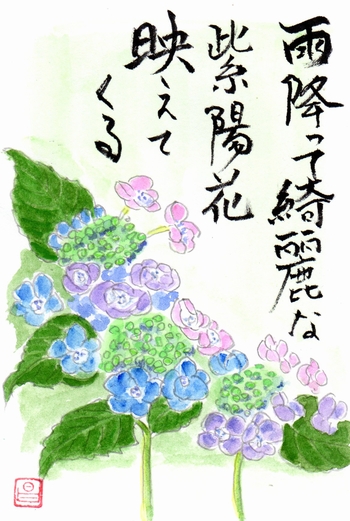 雨降って綺麗な
紫陽花
映えて
くる